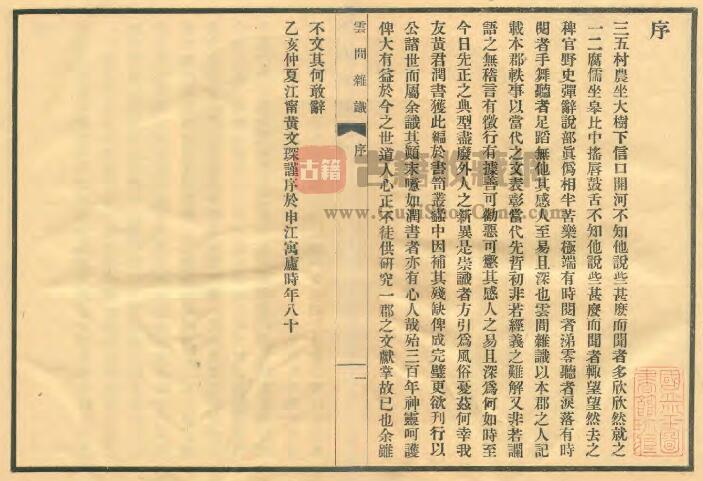 序
三五村農坐大樹下信口開河不知他說些甚麼而聞者多欣欣然就之
一二腐儒坐皋比中搖唇鼓舌不知他說些甚麼而聞者輙望望然去之
稗官野史彈辭說部眞僞相半苦樂極端有時閱者涕零聽者淚落有時
閱者手舞聽者足蹈無他其感人至易且深也雲間雜識以本郡之人記
載本郡軼事以當代之文表彰當代先哲初非若經義之難解又非若讕
語之無稽言有徵行有據善可勸惡可懲其感人之易且深爲何如時至
今日先正之典型盡廢外人之新異是崇識者方引爲風俗憂茲何幸我
友黃君潤書獲此編於書笥叢蠧中因補其殘缺俾成完璧更欲刊行以
公諸世而屬余識其顚末噫如潤書者亦有心人哉殆三百年神靈呵護
俾大有益於今之世道人心正不徒供研究一郡之文獻掌故已也余雖
雲間雜識 序 一
不文其何敢辭
乙亥仲夏江甯黃文琛謹序於申江寓廬時年八十
古籍
www.GujiShopCang.com